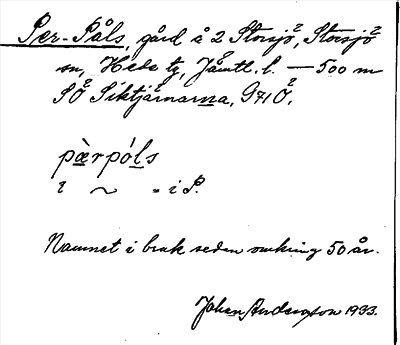 Per-Påls, gård å 2 Storsjö, Storsjö
sn, Hede tg, Jämtl. l. — 500 m
SÖ Siktjärnarna, G41Ö.
pàrpóls
i ~ " i P.
Namnet i bruk sedan omkring 50 år.
Johan Andersson 1933.